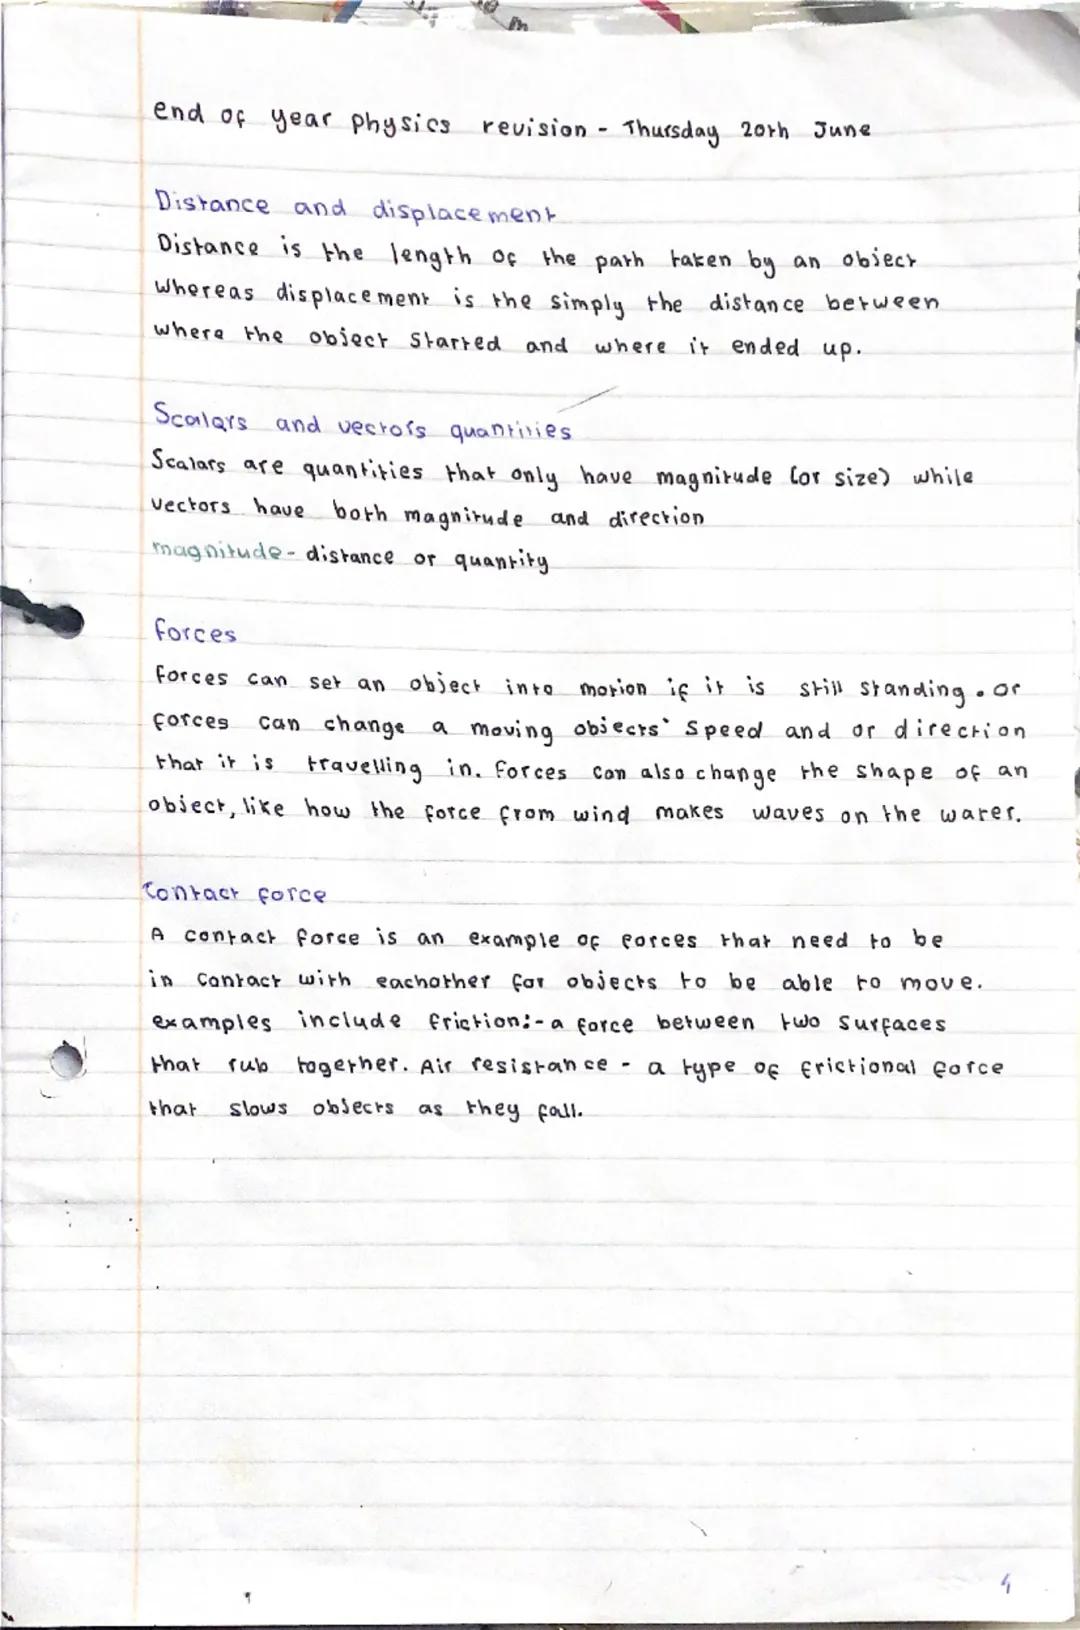 end of year physics revision - Thursday 20th June
Distance and displacement
Distance is the length of the path taken by an object
whereas displacement is the simply the distance between
where the object started and where it ended up.
Scalars and vectors quantities
Scalars are quantities that only have magnitude (or size) while
vectors have both magnitude and direction
magnitude - distance or quantity
forces
forces can set an object into motion if it is still standing. or
forces can change a moving objects' speed and or direction
that it is travelling in. forces can also change the shape of an
object, like how the force from wind makes waves on the water.
Contact force
A contact force is an example of forces that need to be
in contact with eachother for objects to be able to move.
examples include friction:- a force between two surfaces
that rub together. Air resistance - a type of frictional force
that slows objects as they fall.